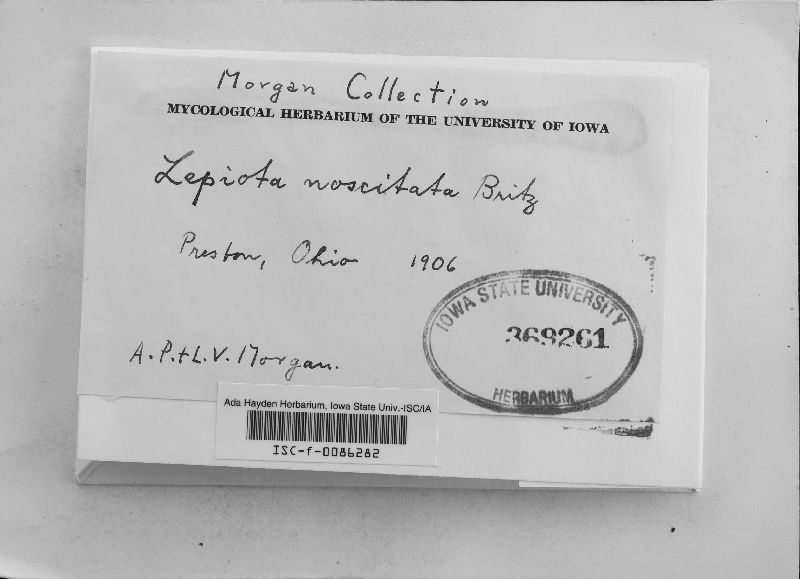 Morgan Collection
MYCOLOGICAL HERBARIUM OF THE UNIVERSITY OF IOWA
Lepiota noscitata Britz
Preston, Ohio 1906
IOWA STATE UNIVERSITY
369261
HERBARIUM
A. P. + L. V. Morgan.
Ada Hayden Herbarium, Iowa State Univ.-ISC/IA
ISC-f-0086282